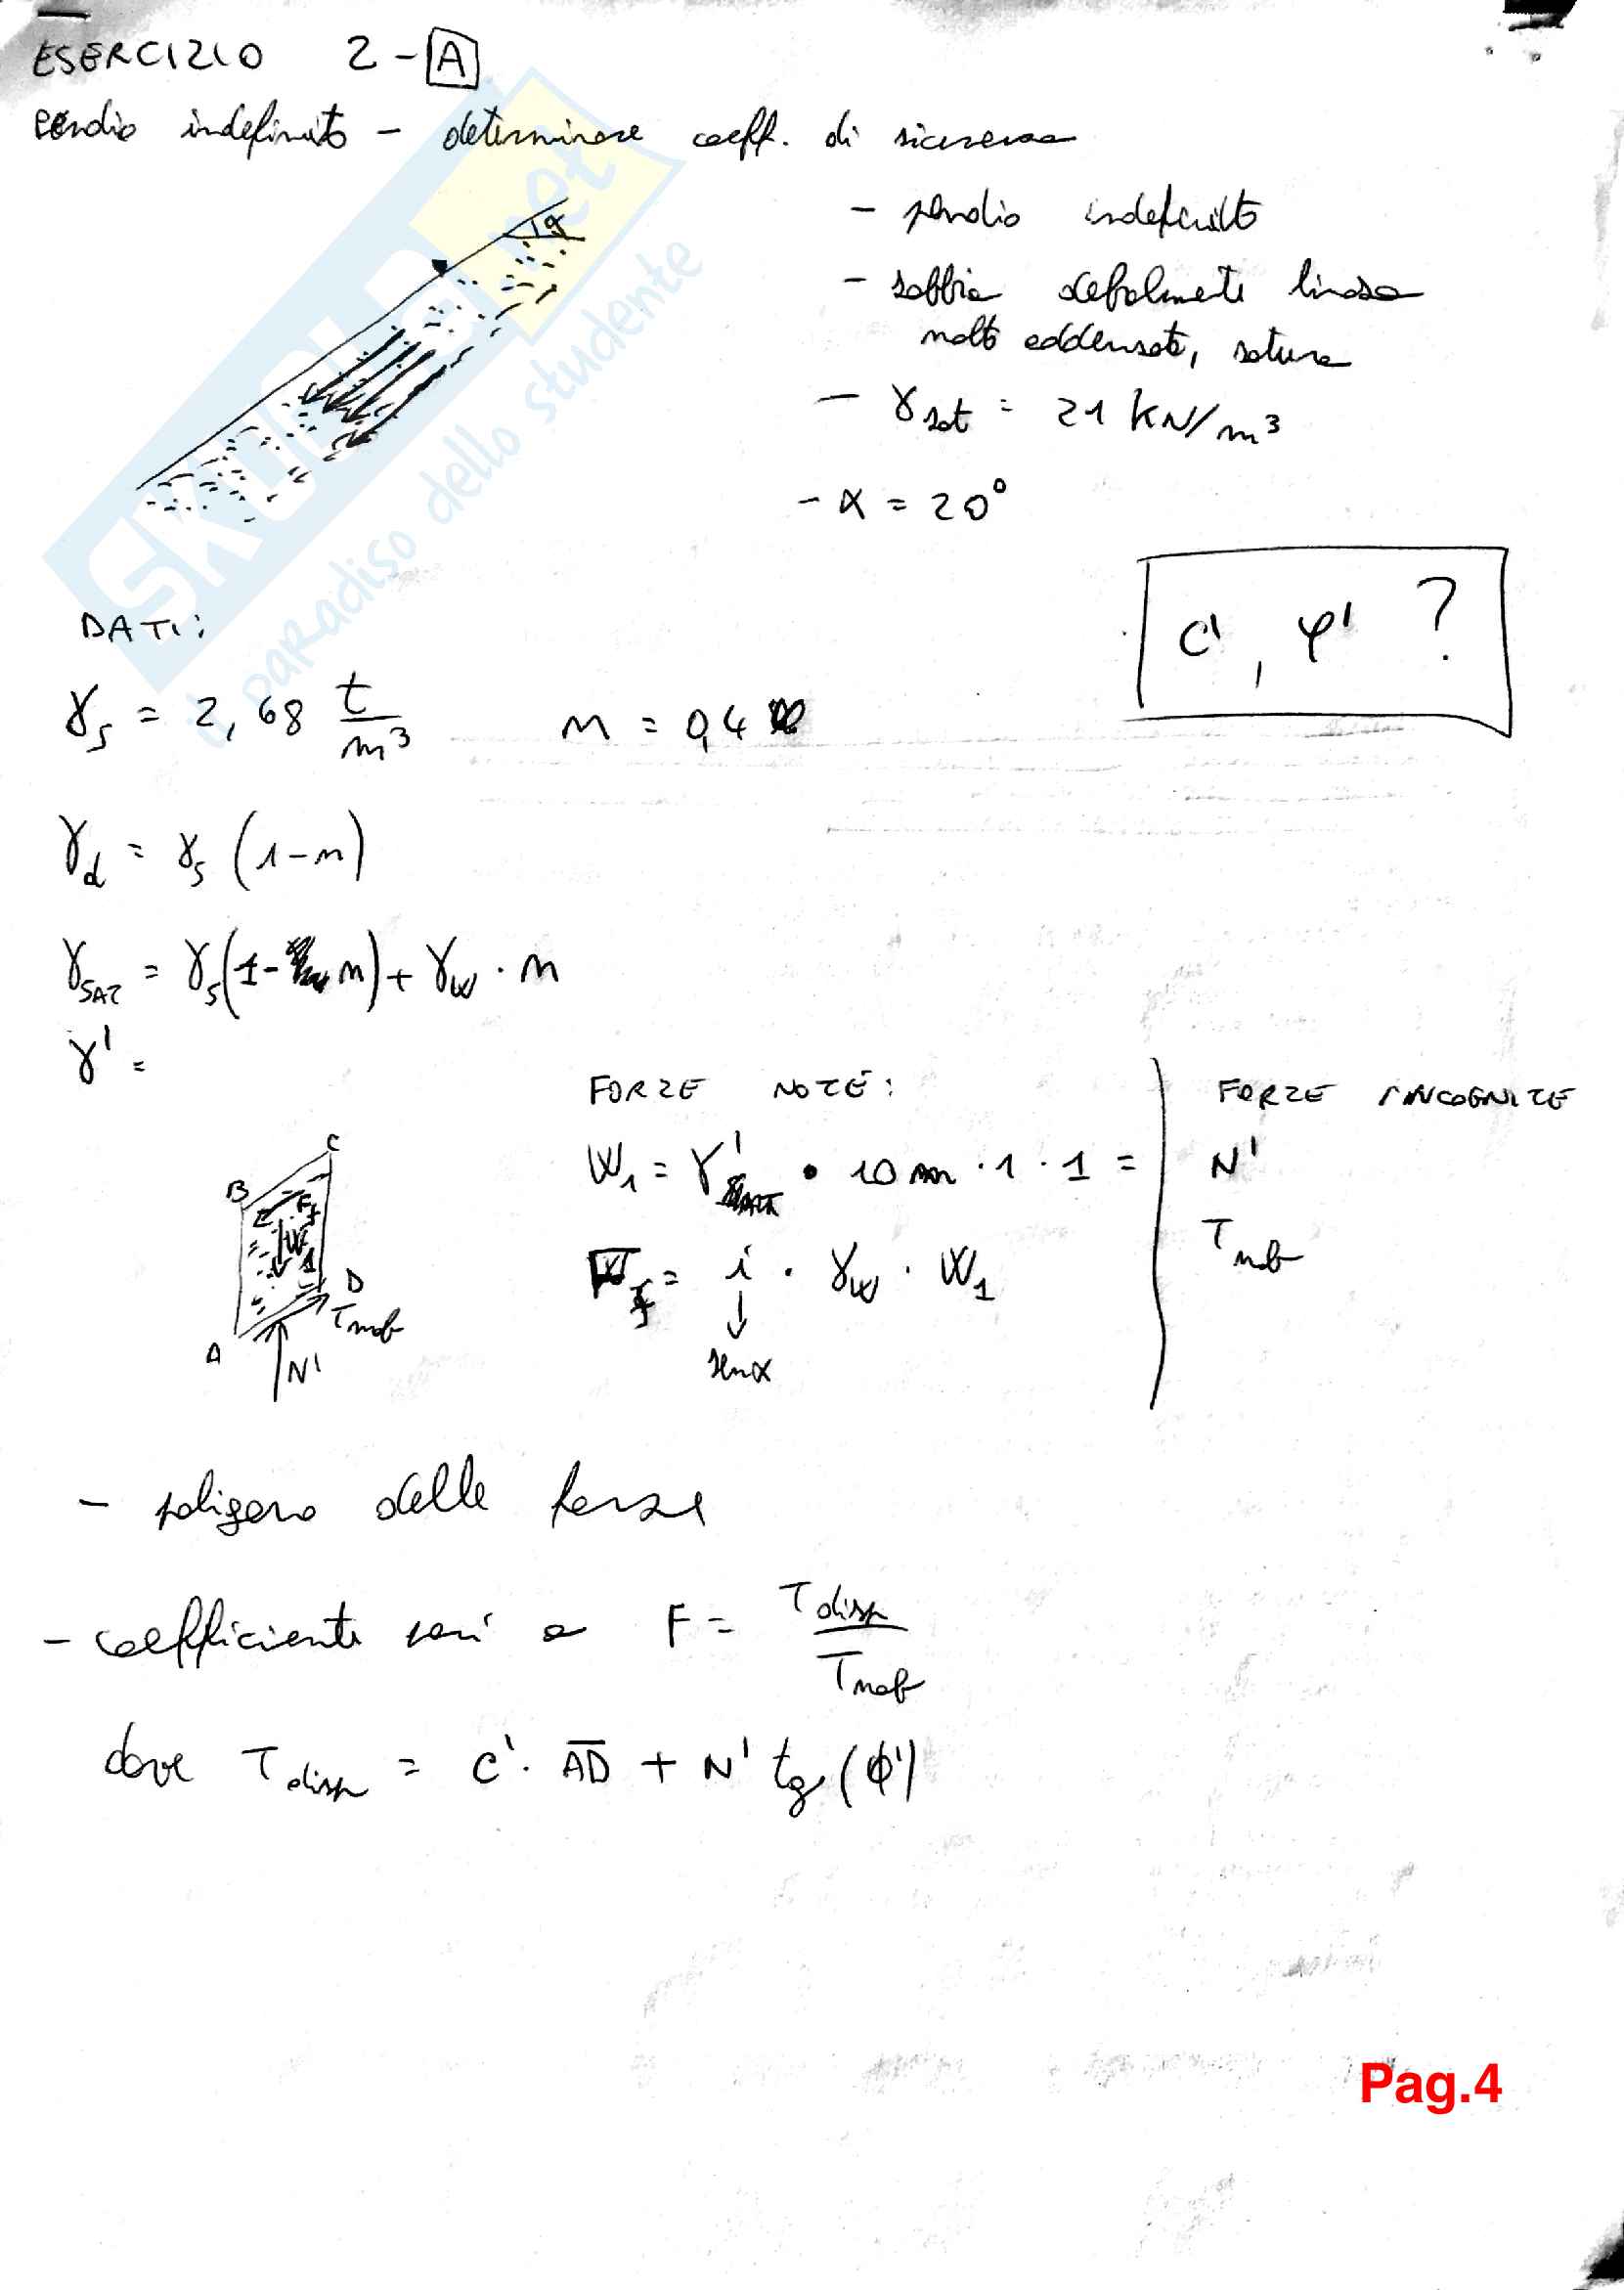 ESERCIZIO 2-A
pendio indefinito - determinare coeff. di sicurezza
α
- pendio indefinito
- sabbia debolmente limosa
molto addensata, satura
- γsat = 21 kN/m³
- α = 20°
SKUOLA.net
il paradiso dello studente
c', φ' ?
DATI:
γs = 2,68 t/m³ n = 0,4
γd = γs (1-n)
γSAT = γs(1-n) + γw · n
γ' =
FORZE NOTE:
FORZE INCOGNITE
W1 = γ' · 10 m · 1 · 1 =
N'
Ff = i · γw · W1
Tmob
senα
B C
Ff
W1
D
Tmob
A
N'
- poligono delle forze
- coefficiente sarà a F = Tdisp / Tmob
dove Tdisp = c' · AD + N' tg (ϕ')
Pag.4